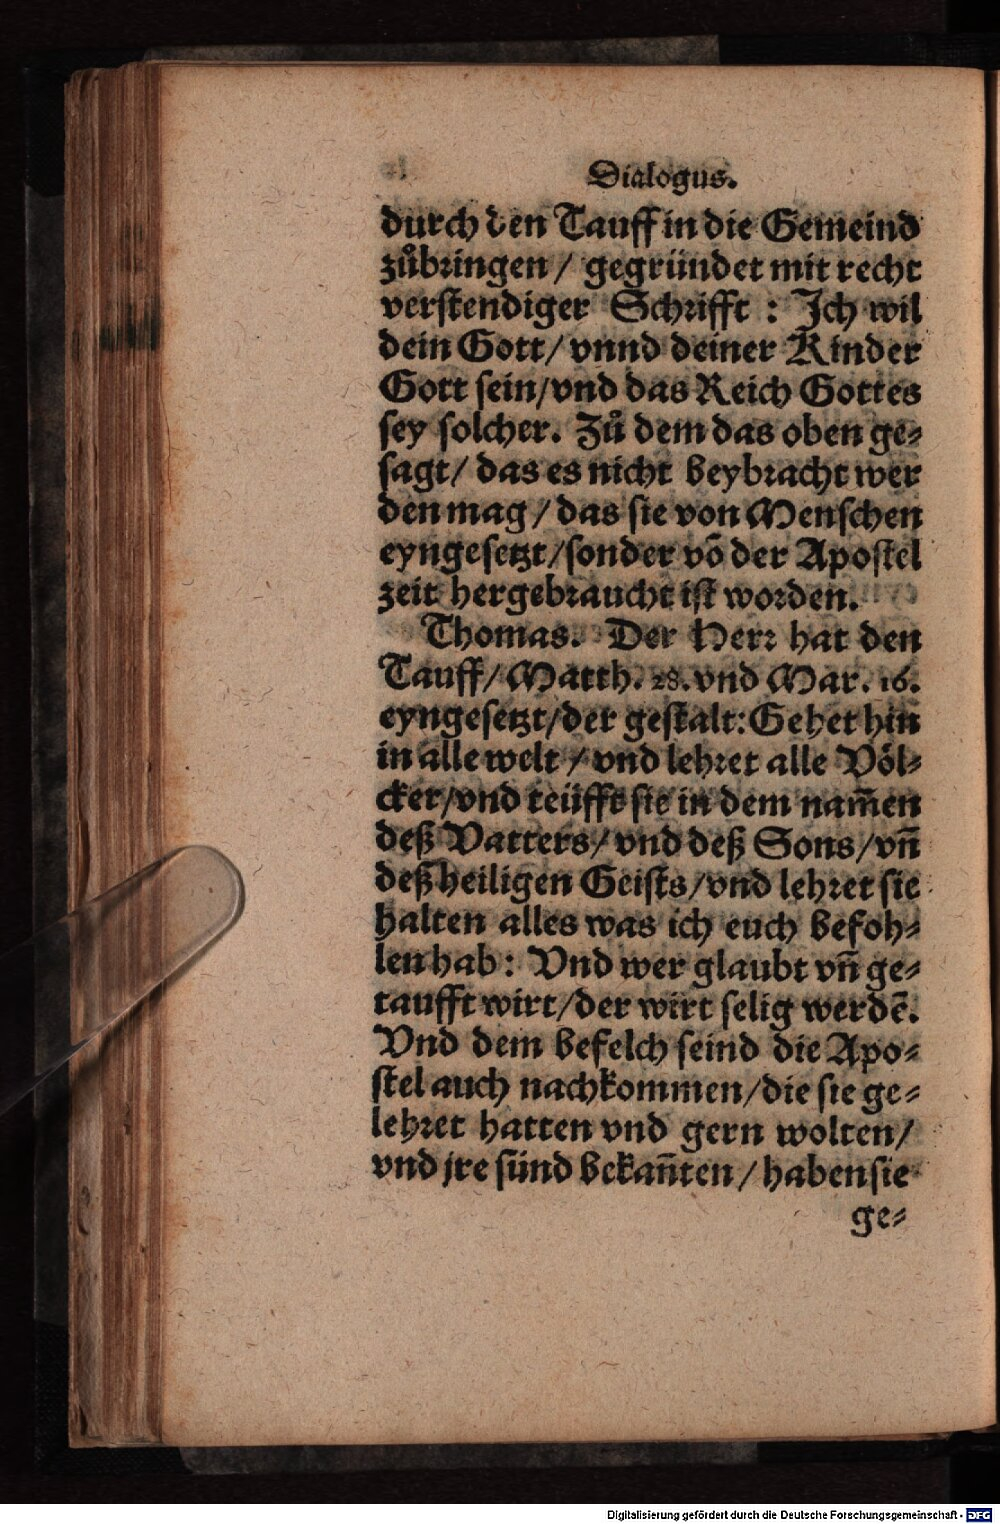 Dialogus.
durch den Tauff in die Gemeind
zůbringen / gegründet mit recht
verstendiger Schrifft : Ich wil
dein Gott/ vnnd deiner Kinder
Gott sein/vnd das Reich Gottes
sey solcher. Zů dem das oben ge⸗
sagt/ das es nicht beybracht wer
den mag / das sie von Menschen
eyngesetzt/sonder võ der Apostel
zeit hergebraucht ist worden.
Thomas. Der Herr hat den
Tauff/ Matth. 28. vnd Mar. 16.
eyngesetzt/der gestalt: Gehet hin
in alle welt / vnd lehret alle Völ⸗
cker/vnd teüfft sie in dem nam̃en
deß Vatters/ vnd deß Sons/ vñ
deß heiligen Geists/vnd lehret sie
halten alles was ich euch befoh⸗
len hab : Vnd wer glaubt vñ ge⸗
taufft wirt/der wirt selig werdẽ.
Vnd dem befelch seind die Apo⸗
stel auch nachkommen/die sie ge⸗
lehret hatten vnd gern wolten/
vnd jre sünd bekañten / haben sie
ge⸗
Digitalisierung gefördert durch die Deutsche Forschungsgemeinschaft - DFG